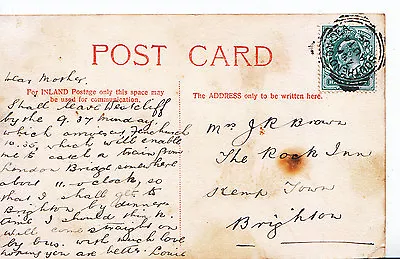 POST CARD
For INLAND Postage only this space may
be used for communication.
The ADDRESS only to be written here.
Dear Mother,
Shall leave Westcliff
by the 9.37 Monday,
which arrives Fenchurch
10.35, which will enable
me to catch a train from
London Bridge somewhere
about 11-o'clock, so
that I shall get to
Brighton by dinner
time I should think.
Will come straight on
by bus. With much love
hoping you are better. Louie
Mrs J R Brown
The Rock Inn
Kemp Town
Brighton